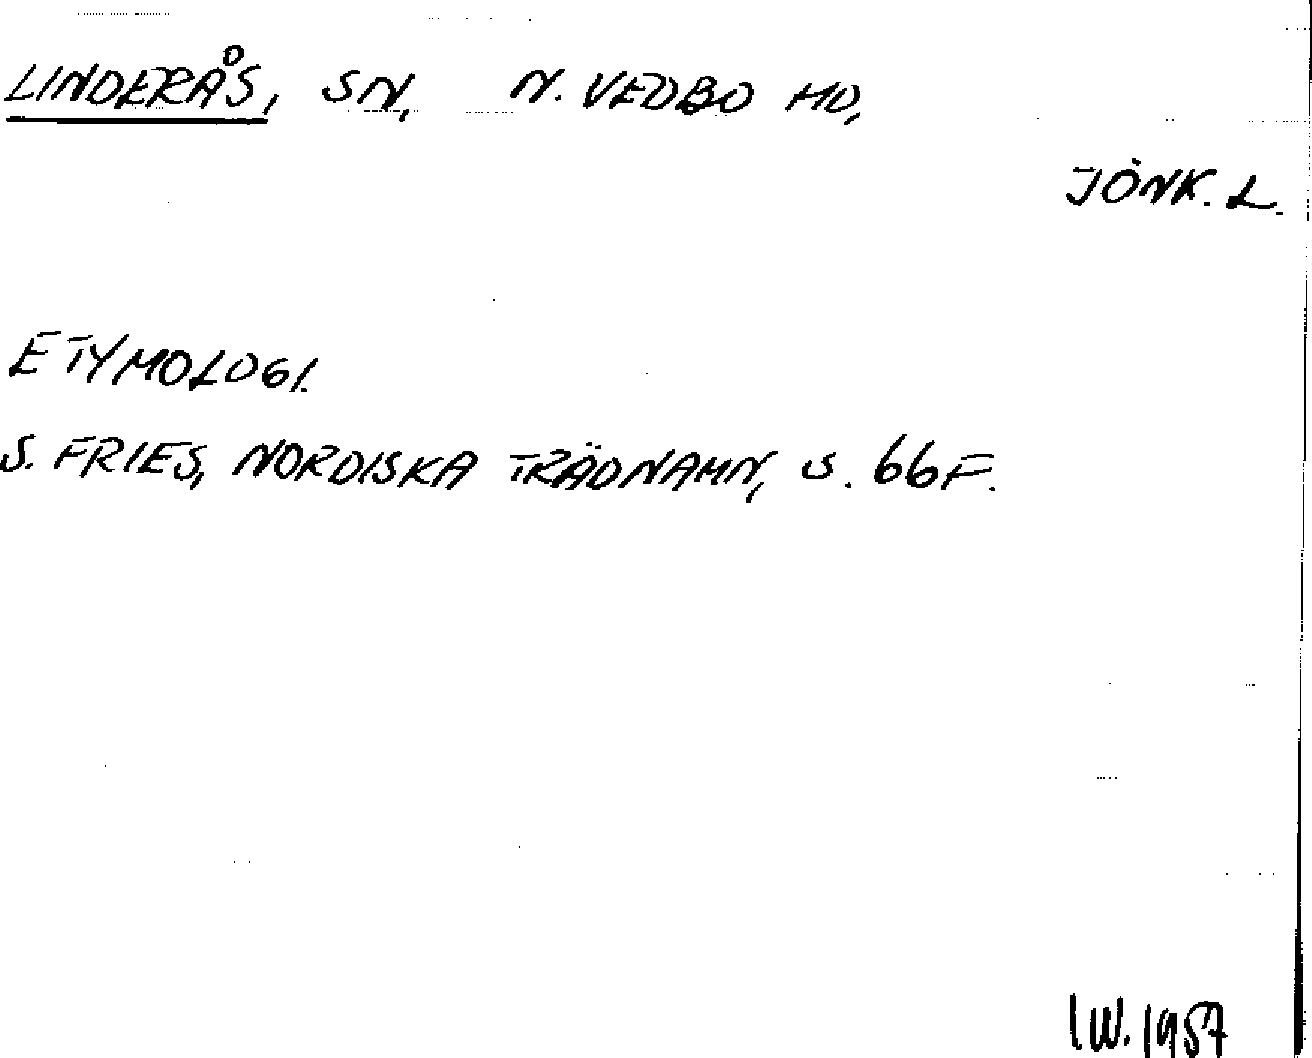 LINDERÅS, SN, N. VEDBO HD,
JÖNK. L.
ETYMOLOGI.
S. FRIES, NORDISKA TRÄDNAMN, S. 66F.
IW. 1957